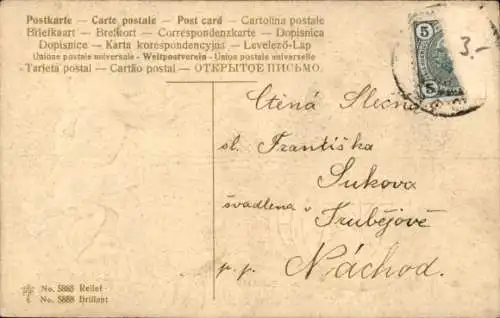 Postkarte — Carte postale — Post card — Cartolina postale
Briefkaart — Brefkort — Correspondenzkarte — Dopisnica
Dopisnice — Karta korespondencyjna — Levelező-Lap
Unione postale universale - Weltpostverein - Union postale universelle
Tarjeta postal — Cartão postal — ОТКРЫТОЕ ПИСЬМО.
5
5
3.-
Ctěná Slečna
sl. Františka
Sukova
švadlena v
Trubějově
p. p. Náchod.
No. 5885 Relief
No. 5888 Brillant